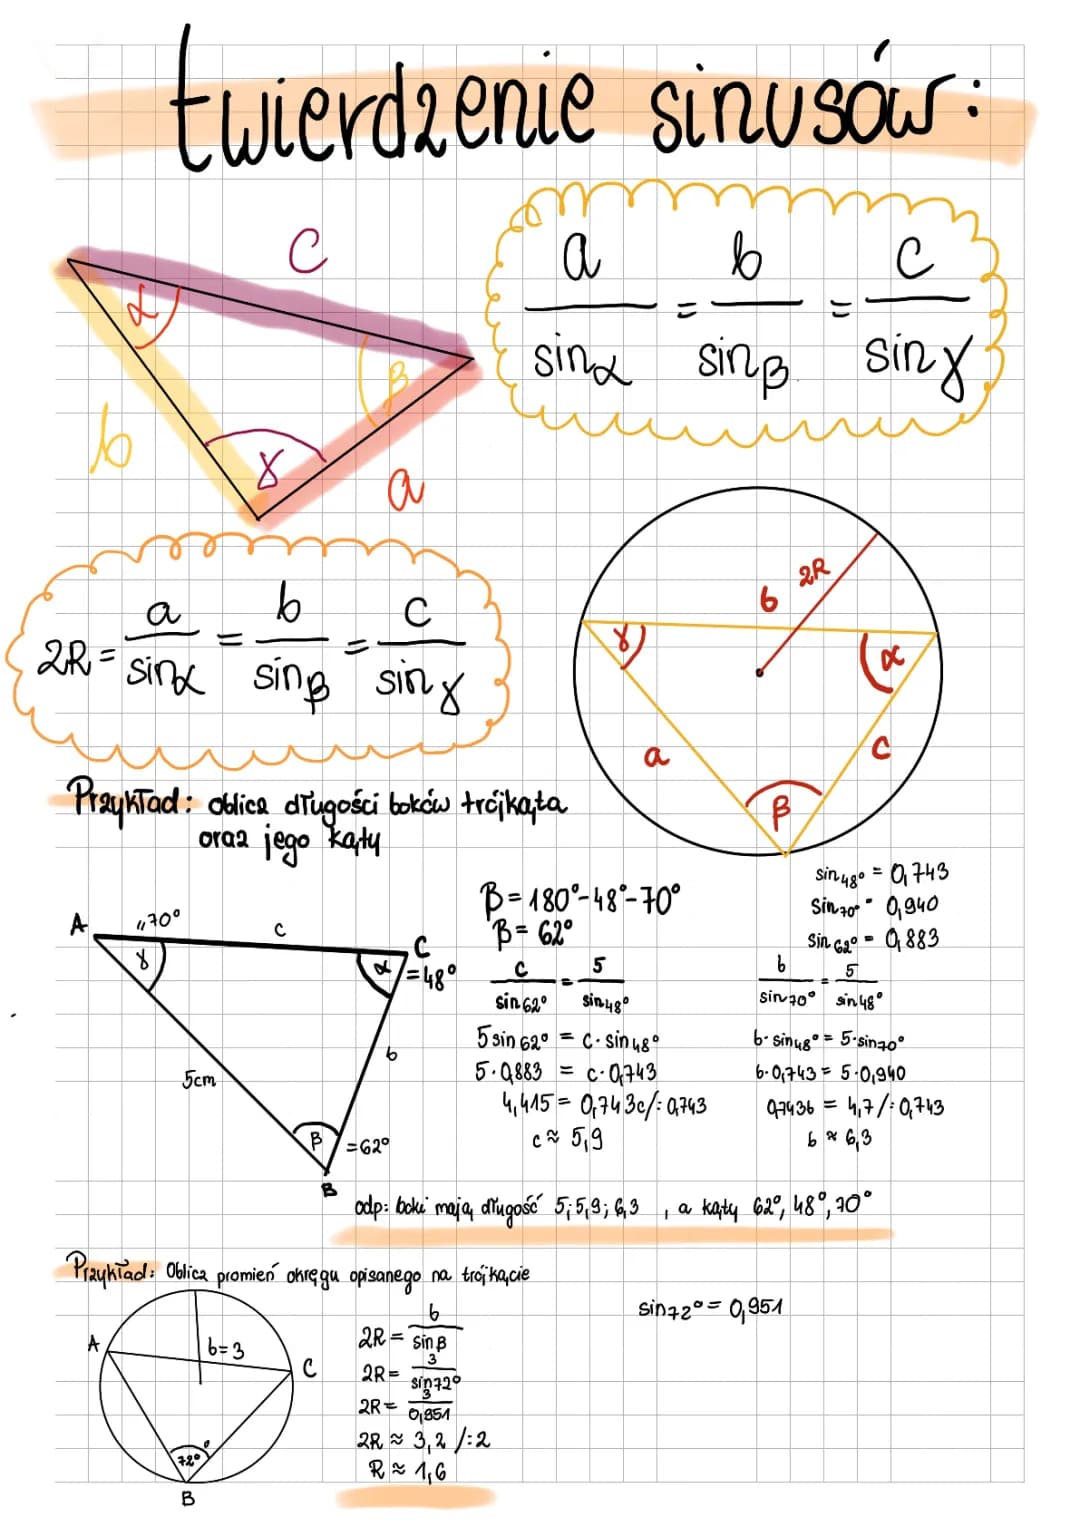 twierdzenie sinusów:
c
α
β
b
γ
a
a/sinα = b/sinβ = c/sinγ
2R = a/sinα = b/sinβ = c/sinγ
b 2R
γ
α
a
c
β
Przykład: oblicz długości boków trójkąta
oraz jego kąty
A
70°
c
C
γ
α
=48°
b
5cm
β
=62°
B
β = 180°-48°-70°
β = 62°
c/sin62° = 5/sin48°
5 sin62° = c · sin48°
5 · 0,883 = c · 0,743
4,415 = 0,743c /: 0,743
c ≈ 5,9
sin48° = 0,743
sin70° = 0,940
sin62° = 0,883
b/sin70° = 5/sin48°
b · sin48° = 5 · sin70°
b · 0,743 = 5 · 0,940
0,743b = 4,7 /: 0,743
b ≈ 6,3
odp: boki mają długość 5; 5,9; 6,3 , a kąty 62°, 48°, 70°
Przykład: Oblicz promień okręgu opisanego na trójkącie
A
b=3
C
72°
B
2R = b/sinβ
2R = 3/sin72°
2R = 3/0,951
2R ≈ 3,2 /:2
R ≈ 1,6
sin72° = 0,951